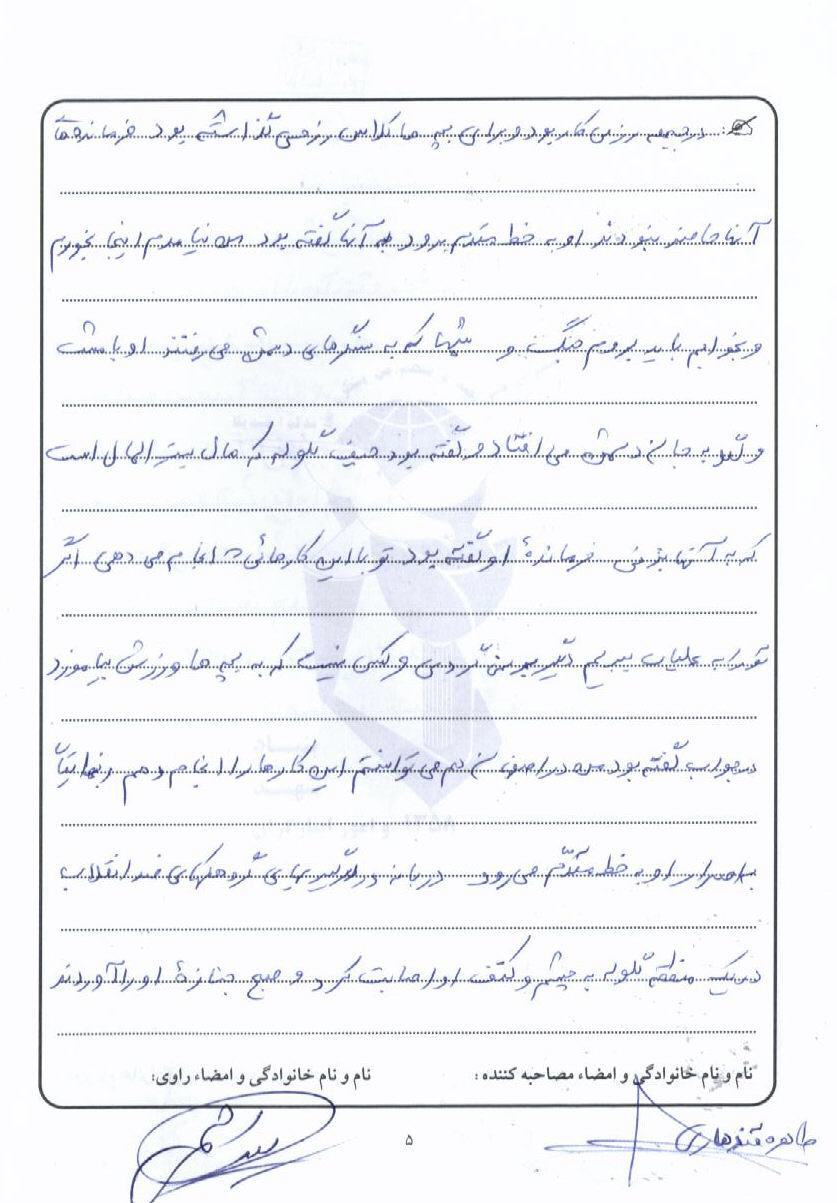 در جبهه رزمی کار بود و برای بچه ها کلاس رزمی گذاشته بود فرمانده ها
آنها حاضر نبودند او به خط مقدم برود به آنها گفته بود من نیامدم اینجا بخورم
و بخوابم باید بروم جنگ و شبها که به سنگرهای دشمن می رفتند او با مشت
و لگد به جان دشمن می افتاد و گفته بود حیف گلوله که مال بیت المال است
که به آنها بزنی فرماندهٔ او گفته بود تو با این کارهائی که انجام می دهی اگر
تو را به عملیات ببریم دیگر بر نمی گردی و کسی نیست که به بچه ها ورزش بیاموزد
در جواب گفته بود من در اصفهان هم می توانستم این کارها را انجام دهم و نهایتاً
با اصرار او به خط مقدم می رود در بانه در درگیریهای گروهکهای ضد انقلاب
در یک منطقه گلوله به چشم و کتف او اصابت کرد و صبح جنازهٔ او را آوردند
نام و نام خانوادگی و امضاء مصاحبه کننده : نام و نام خانوادگی و امضاء راوی:
طاهره قندهاری
۵